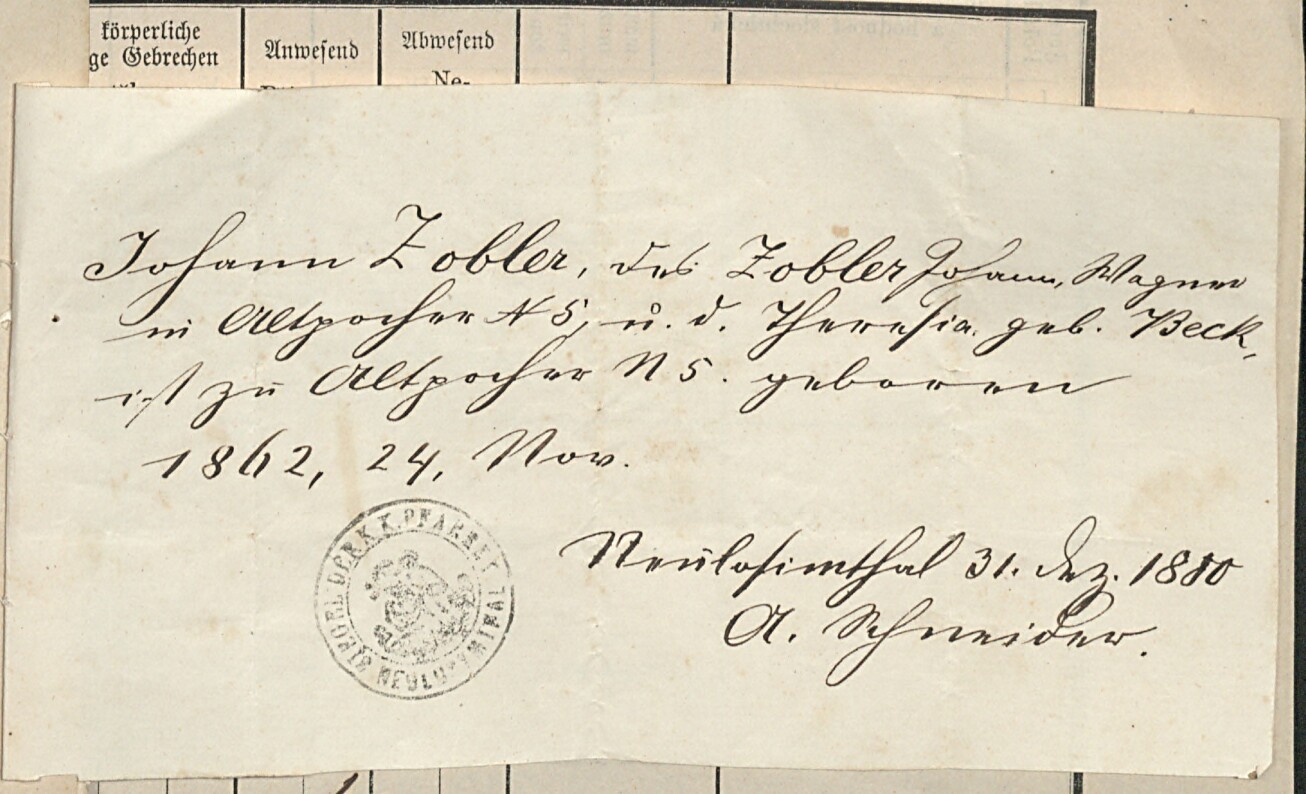 körperliche
ge Gebrechen
Anwesend
Abwesend
Ne-
Johann Zobler, des Zobler Johann, Wagner
in Altpocher N 5, u. d. Theresia geb. Beck,
ist zu Altpocher N 5. geboren
1862, 24, Nov.
SIEGEL DER K. K. PFARREI NEULOSIMTHAL
Neulosimthal 31. Dez. 1880
A. Schneider.